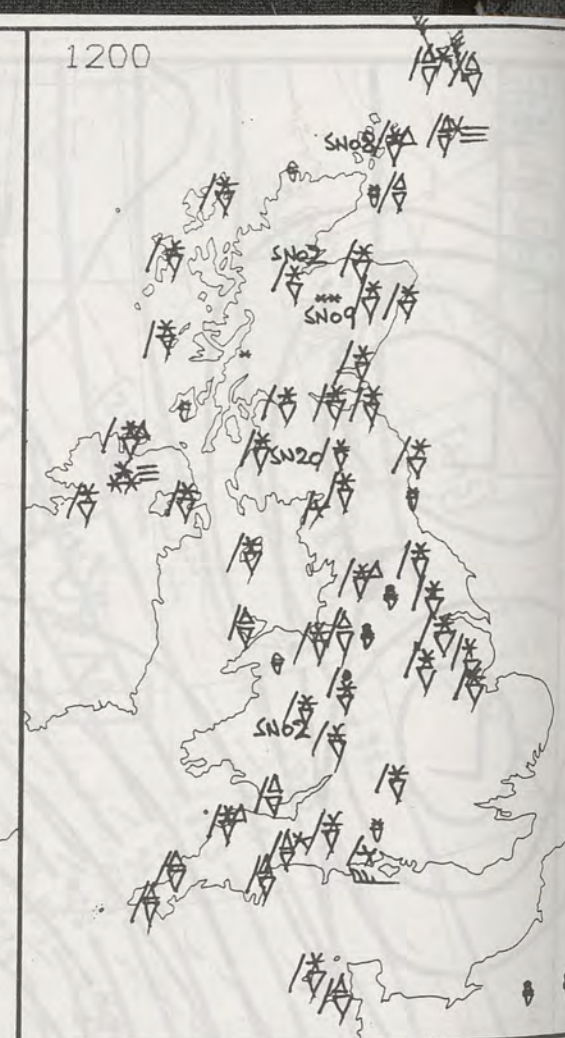 1200
SN08
SN02
SN09
SN20
SN02